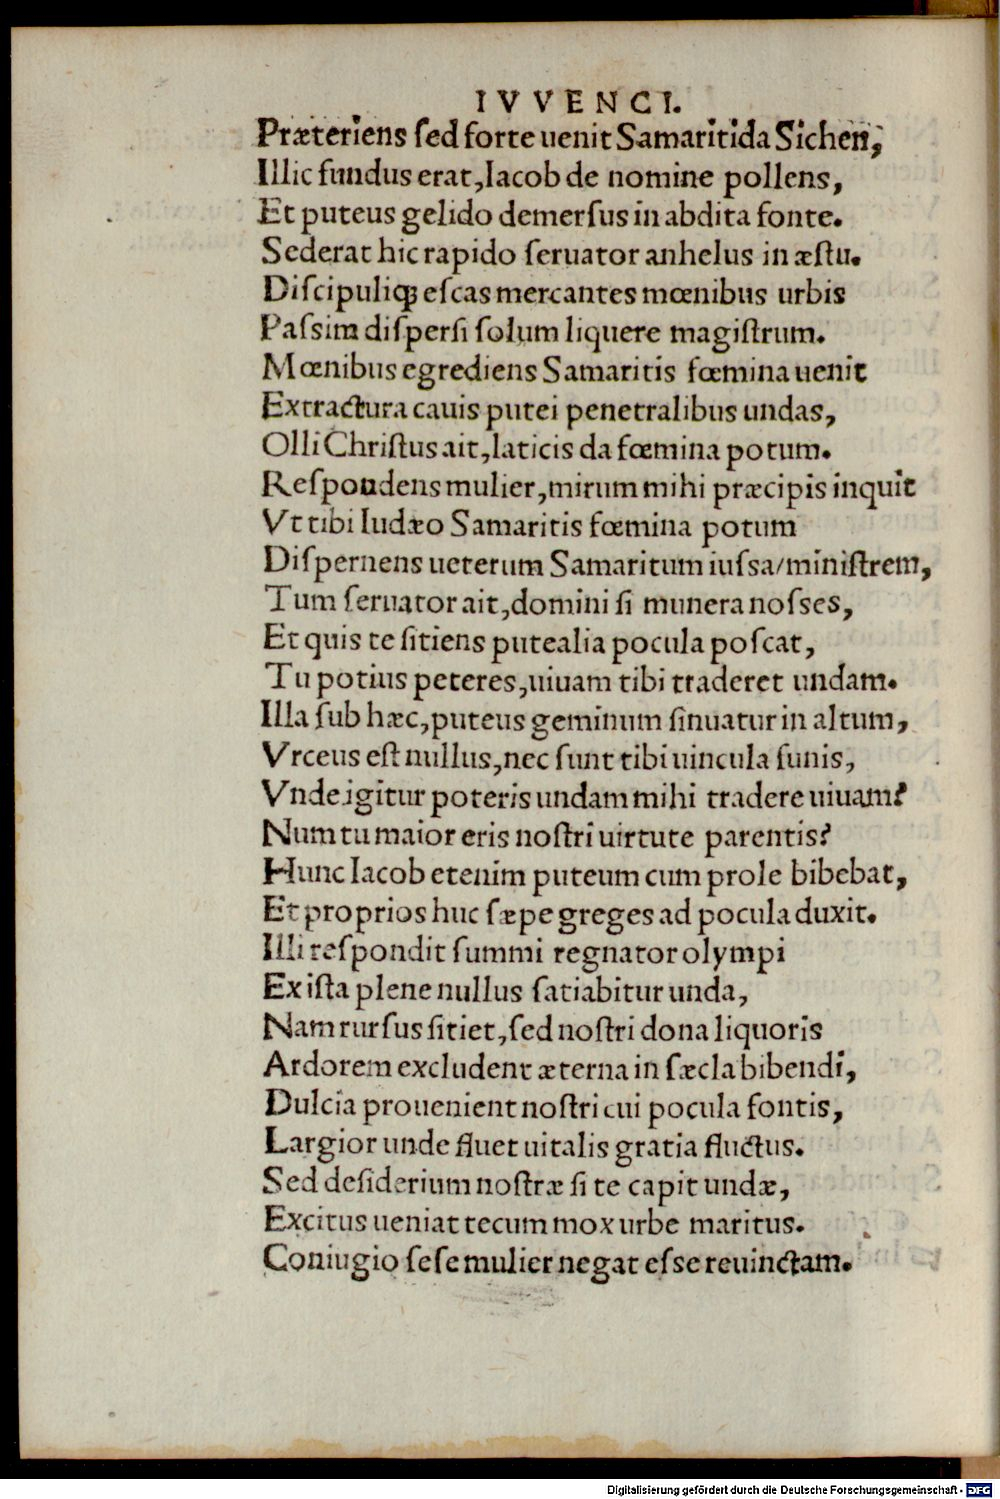 IVVENCI.
Præteriens ſed forte uenit Samaritida Sichen,
Illic fundus erat, Iacob de nomine pollens,
Et puteus gelido demerſus in abdita fonte.
Sederat hic rapido ſeruator anhelus in æſtu.
Diſcipuliqꝫ eſcas mercantes mœnibus urbis
Paſsim diſperſi ſolum liquere magiſtrum.
Mœnibus egrediens Samaritis fœmina uenit
Extractura cauis putei penetralibus undas,
Olli Chriſtus ait, laticis da fœmina potum.
Reſpondens mulier, mirum mihi præcipis inquit
Vt tibi Iudæo Samaritis fœmina potum
Diſpernens ueterum Samaritum iuſsa/miniſtrem,
Tum ſeruator ait, domini ſi munera noſses,
Et quis te ſitiens putealia pocula poſcat,
Tu potius peteres, uiuam tibi traderet undam.
Illa ſub hæc, puteus geminum ſinuatur in altum,
Vrceus eſt nullus, nec ſunt tibi uincula funis,
Vnde igitur poteris undam mihi tradere uiuam?
Num tu maior eris noſtri uirtute parentis?
Hunc Iacob etenim puteum cum prole bibebat,
Et proprios huc ſæpe greges ad pocula duxit.
Illi reſpondit ſummi regnator olympi
Ex iſta plene nullus ſatiabitur unda,
Nam rurſus ſitiet, ſed noſtri dona liquoris
Ardorem excludent æterna in ſæcla bibendi,
Dulcia prouenient noſtri cui pocula fontis,
Largior unde fluet uitalis gratia fluctus.
Sed deſiderium noſtræ ſi te capit undæ,
Excitus ueniat tecum mox urbe maritus.
Coniugio ſeſe mulier negat eſse reuinctam.
Digitalisierung gefördert durch die Deutsche Forschungsgemeinschaft - DFG